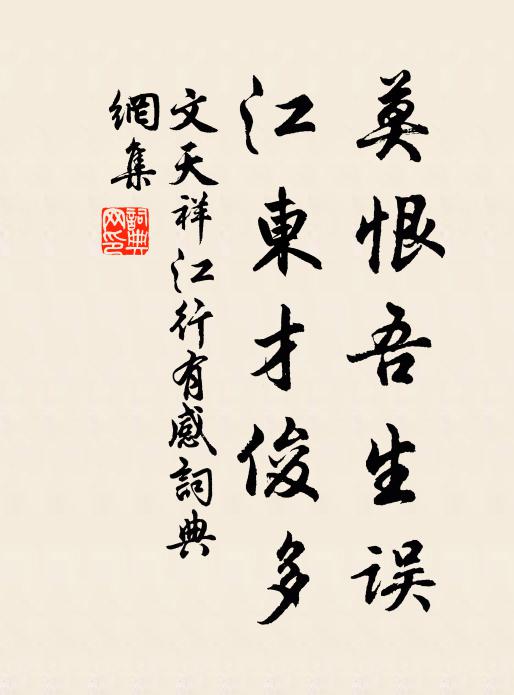 莫恨吾生誤
江東才俊多
文天祥江行有感詞典
網集
詞典
网印